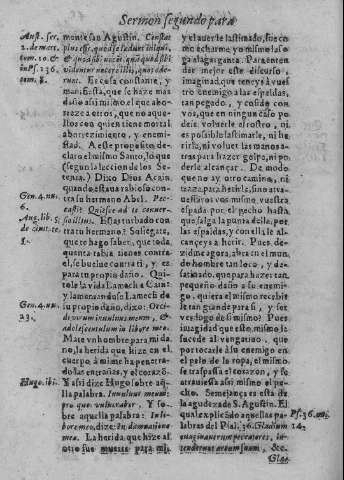 Sermon segundo para
Aust. ser.
2. de mart.
tom. 10. &
in Ps. 136.
tom. 8.
monte san Agustin. Constat
plus esse, quod se lædunt iniqui,
& quod sibi nocent, quàm quod sibi
videntur
Esso es constante, y
manifiesta, que se haze mas
daño asi mismo el que aborrece
a otros, que no aquellos
con quien tiene mortal
aborrecimiento, y enemistad.
A este proposito declarò
el mismo Santo, lo que
(segun la leccion de los Setenta.)
Dixo Dios a Cain,
quando estaua rabioso contra
su hermano Abel. Peccasti?
Quiesce ad te conuersio
illius. Estas turbado contra
tu hermano? Sossiegate,
que te hago saber, que toda
quenta rabia tienes contra
el, se buelue contra ti, y es
para tu propio daño. Quitole
la vida Lamech a Cain:
y lamentandose Lamech de
su propio daño, dixo: Occidi
virum in vulnus meum, &
adolescentulum in liuore meo.
Matè vn hombre para mi daño,
la herida que hize en el
cuerpo, à mi me ha penetrado
las entrañas, y el coraçõ.
Y asi dize Hugo sobre aquella
palabra. In vulnus meum;
pro quo vulnerabor. Y sobre
aquella palabra: In liuore
meo, dize: In damnationem
mea. La herida que hize al
otro fue muerte para mi,
Gen. 4. nu.
6.
Aug. lib. 5.
de ciuit. c.
1.
Gen. 4. nu.
23.
Hugo. ibi.
y el auerle lastimado, fue como
echarme yo mismo la soga
a la garganta. Para entender
mejor este discurso,
imaginad, que teneys a vuestro
enemigo a las espaldas,
tan pegado, y cosido con
vos, que en ningun caso podeis
voluerle al rostro, ni
es posible lastimarle, ni herirle,
ni voluer las manos atras
para hazer golpe, ni poderle
alcançar. De modo
que no ay otro camino, ni
traza, para herirle, sino atrauesaros
vos mismo vuestra
espada por el pecho hasta
que salga la punta della, por
las espaldas, y con ella le alcançeys
a herir. Pues dezidme
agora, abra en el mundo
hombre tan loco, y desatinado,
que para hazer tan
pequeño daño a su enemigo,
quiera el mismo recebirle
tan grande para si, y ser
verdugo de si mismo? Pues
imaginad que esso mismo le
sucede al vengatiuo, que
por tocarle a su enemigo en
el pelo de la ropa, el mismo
se traspassa el corazon, y se
atrauiessa assi mismo el pecho.
Semejança es esta de
la agudeza de S. Agustin. El
qual explicãdo aquellas palabras
del Psal. 36. Gladium
euaginauerunt peccatores, intenderunt
arcum suum, &c.
Glac
Ps. 36. nu.
14.